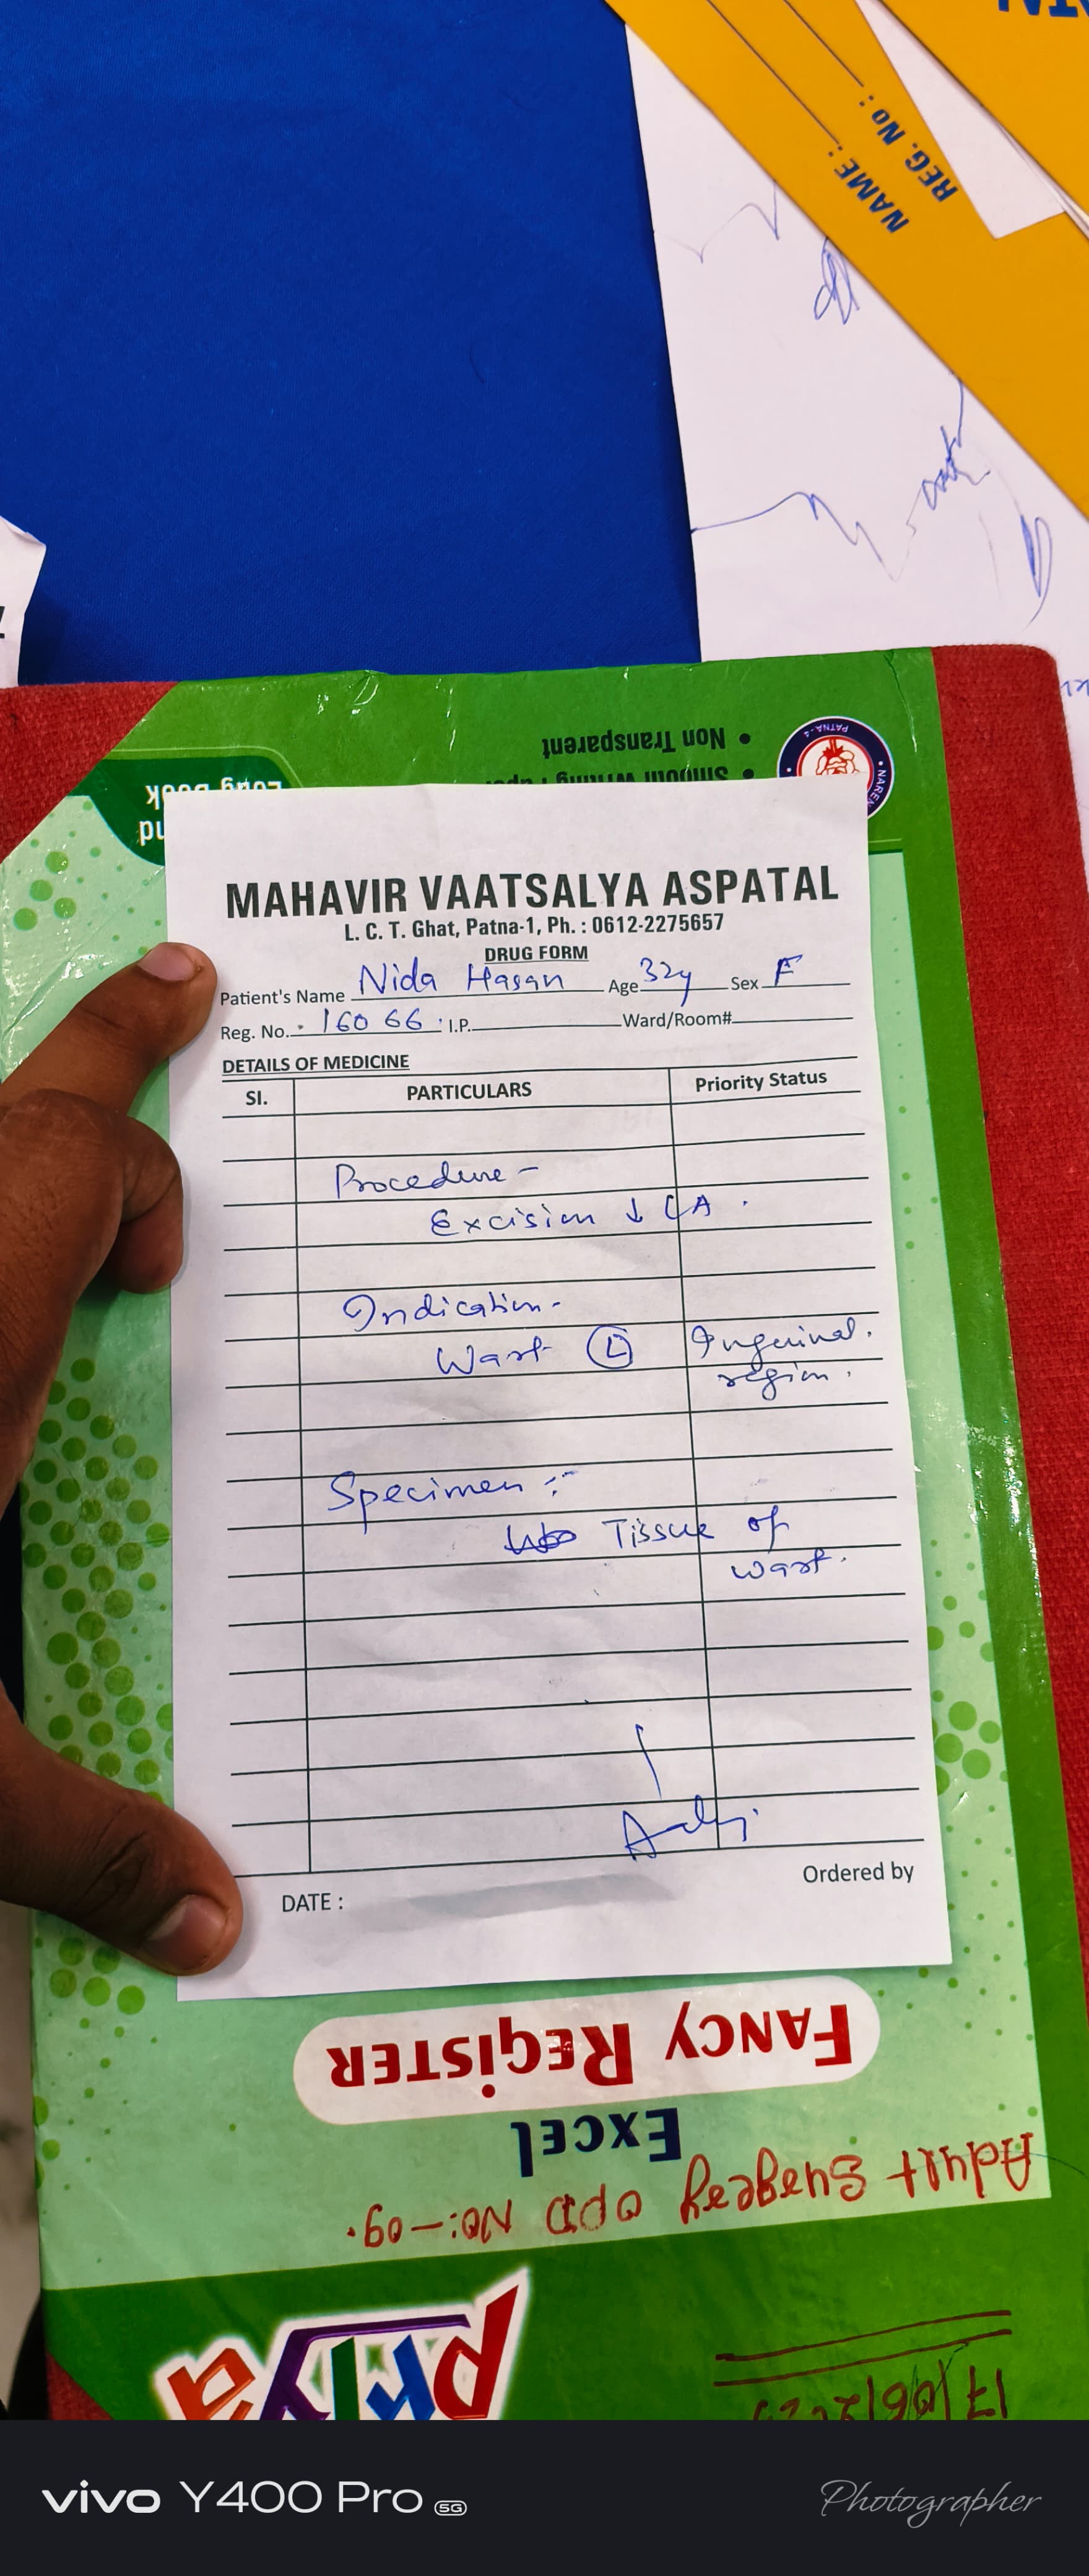 NAME :
REG. No :
Non Transparent
Smooth Writing
Long Book
PATNA-4
NAREN
MAHAVIR VAATSALYA ASPATAL
L. C. T. Ghat, Patna-1, Ph. : 0612-2275657
DRUG FORM
Patient's Name Nida Hasan Age 32y Sex F
Reg. No. 16066 I.P. Ward/Room#
DETAILS OF MEDICINE
Sl. PARTICULARS Priority Status
Procedure -
Excision ↓ LA.
Indication -
Wart Ⓛ Inguinal.
region.
Specimen :-
Tissue of
wart.
Ordered by
DATE :
FANCY REGISTER
EXCEL
Adult Surgery OPD No:-09.
vivo Y400 Pro 5G
Photographer